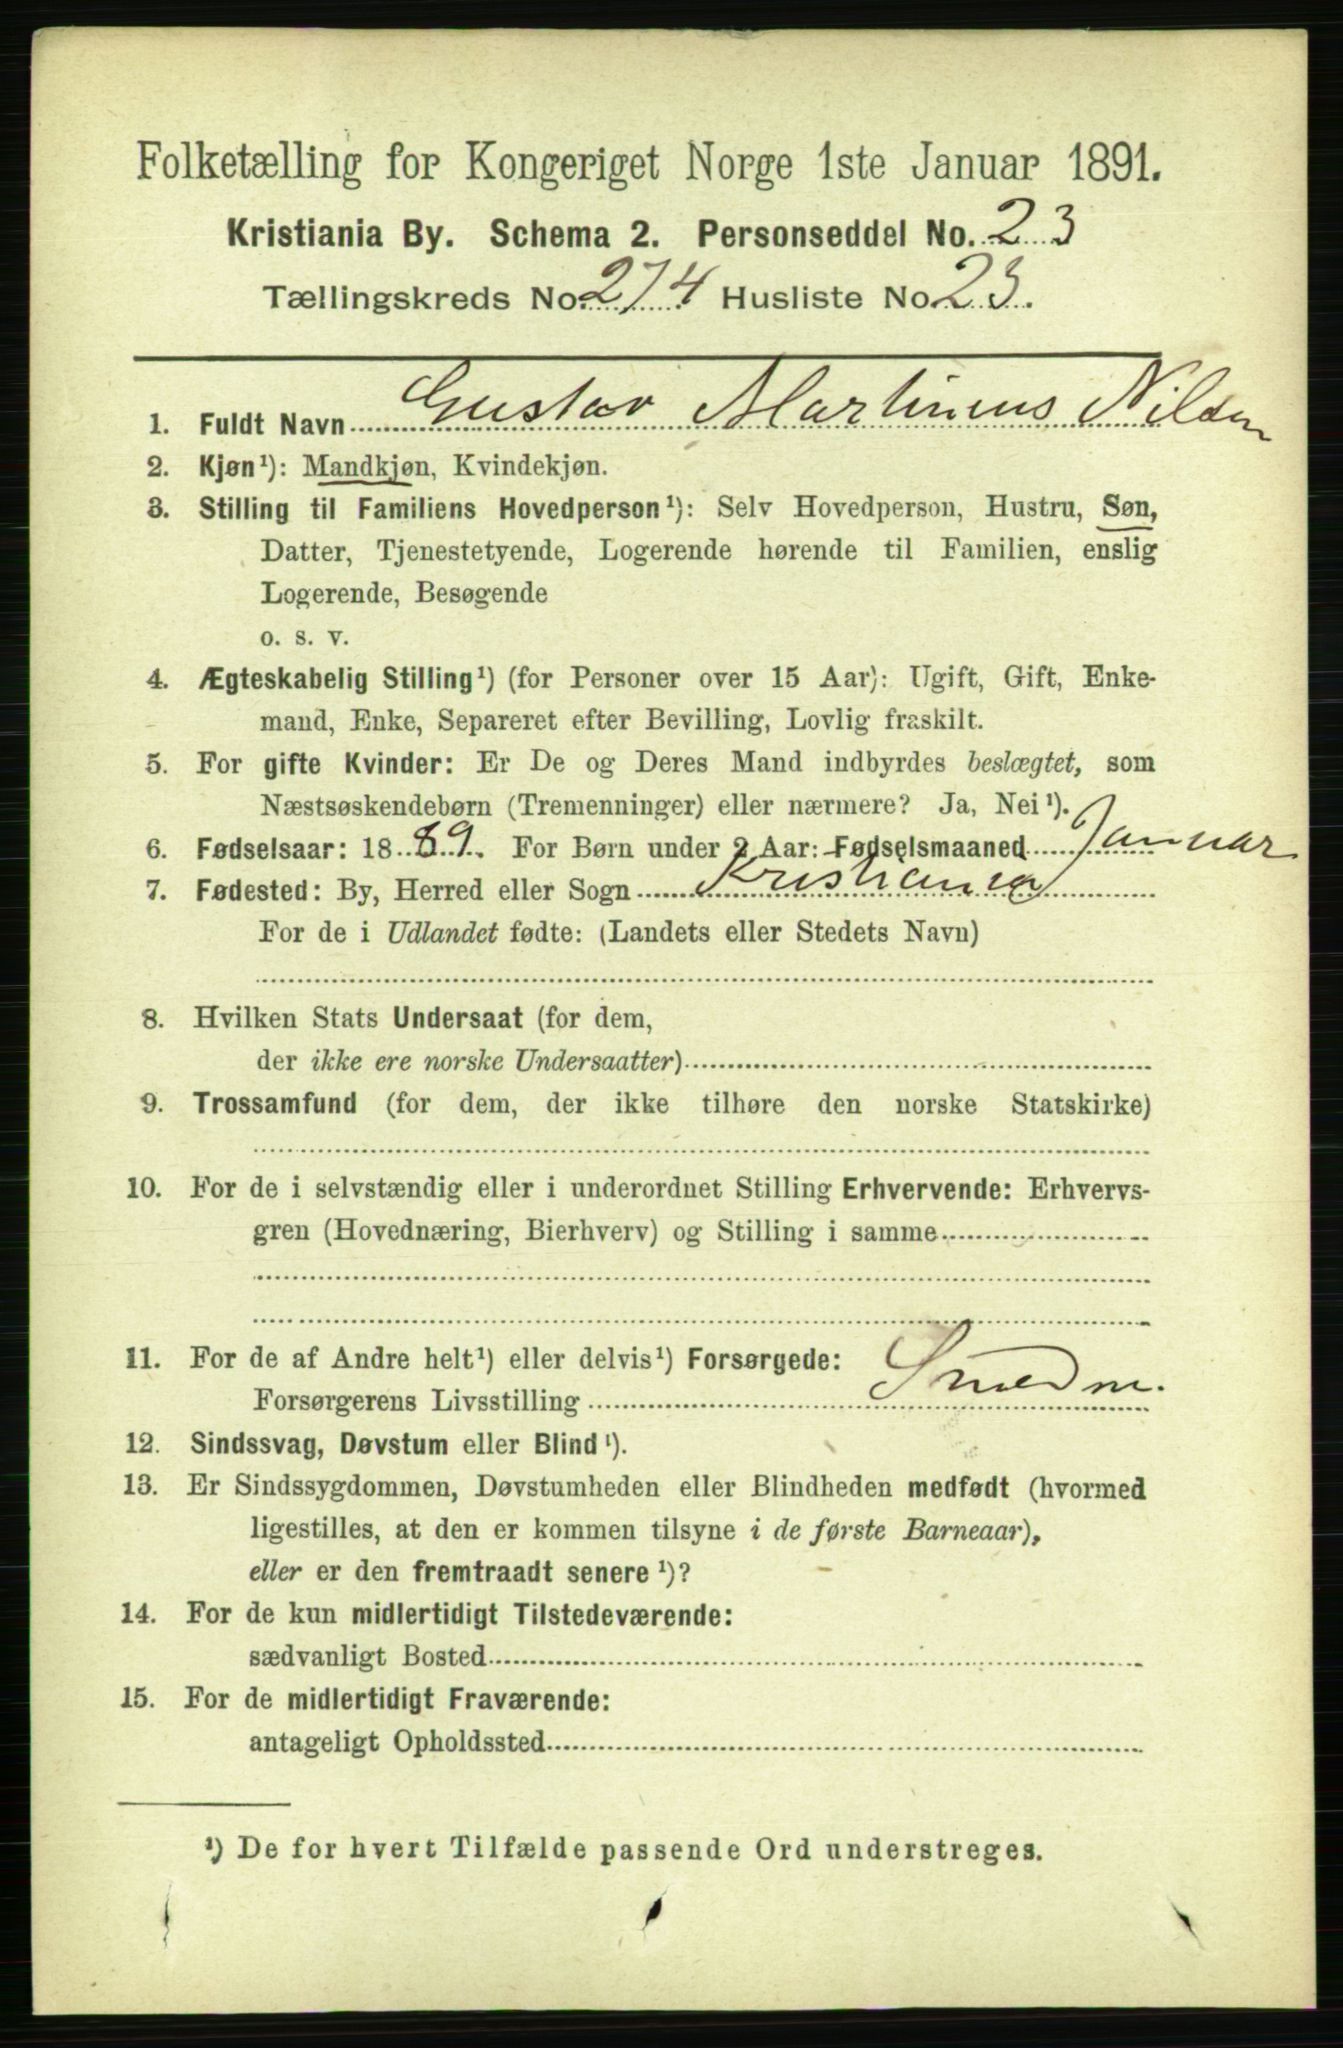 Folketælling for Kongeriget Norge 1ste Januar 1891.
Kristiania By. Schema 2. Personseddel No. 23
Tællingskreds No. 274 Husliste No. 23.
1. Fuldt Navn Gustav Martinius Nilsen
2. Kjøn¹): Mandkjøn, Kvindekjøn.
3. Stilling til Familiens Hovedperson¹): Selv Hovedperson, Hustru, Søn,
Datter, Tjenestetyende, Logerende hørende til Familien, enslig
Logerende, Besøgende
o. s. v.
4. Ægteskabelig Stilling¹) (for Personer over 15 Aar): Ugift, Gift, Enke-
mand, Enke, Separeret efter Bevilling, Lovlig fraskilt.
5. For gifte Kvinder: Er De og Deres Mand indbyrdes beslægtet, som
Næstsøskendebørn (Tremenninger) eller nærmere? Ja, Nei¹).
6. Fødselsaar: 1889. For Børn under 2 Aar: Fødselsmaaned Januar
7. Fødested: By, Herred eller Sogn Kristiania
For de i Udlandet fødte: (Landets eller Stedets Navn)
8. Hvilken Stats Undersaat (for dem,
der ikke ere norske Undersaatter)
9. Trossamfund (for dem, der ikke tilhøre den norske Statskirke)
10. For de i selvstændig eller i underordnet Stilling Erhvervende: Erhvervs-
gren (Hovednæring, Bierhverv) og Stilling i samme
11. For de af Andre helt¹) eller delvis¹) Forsørgede:
Forsørgerens Livsstilling Smedm.
12. Sindssvag, Døvstum eller Blind¹).
13. Er Sindssygdommen, Døvstumheden eller Blindheden medfødt (hvormed
ligestilles, at den er kommen tilsyne i de første Barneaar),
eller er den fremtraadt senere¹)?
14. For de kun midlertidigt Tilstedeværende:
sædvanligt Bosted
15. For de midlertidigt Fraværende:
antageligt Opholdssted
¹) De for hvert Tilfælde passende Ord understreges.